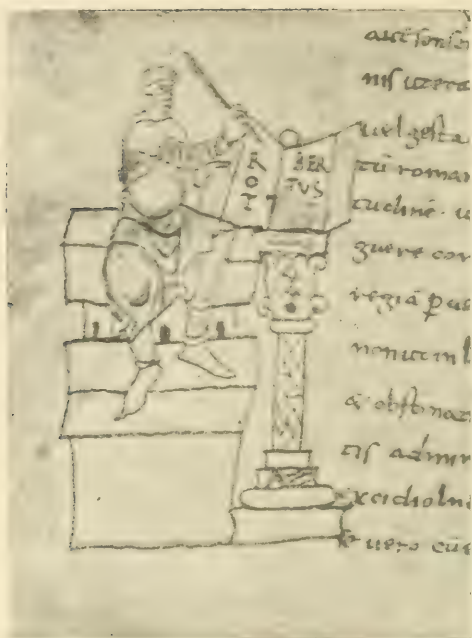 R
O
T
BER
TVS
nis utera
uel gesta
tū roman
tudinē u
guere con
regiā p ue
non ut in l
& obstinaa
tis admir
excidio hu
e uero cū